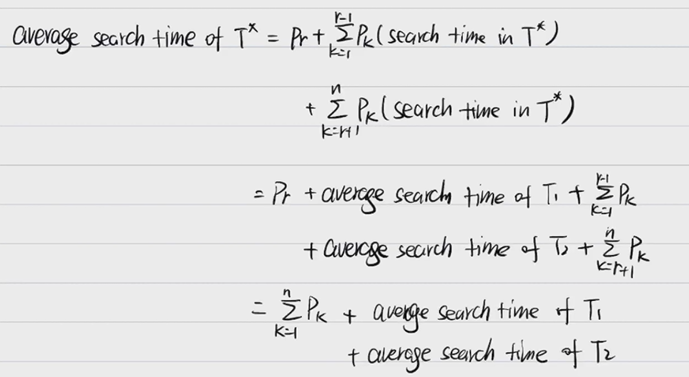 average search time of T* = Pr + Σ_{k=1}^{r-1} Pk (search time in T*)
+ Σ_{k=r+1}^{n} Pk (search time in T*)
= Pr + average search time of T₁ + Σ_{k=1}^{r-1} Pk
+ average search time of T₂ + Σ_{k=r+1}^{n} Pk
= Σ_{k=1}^{n} Pk + average search time of T₁
+ average search time of T₂